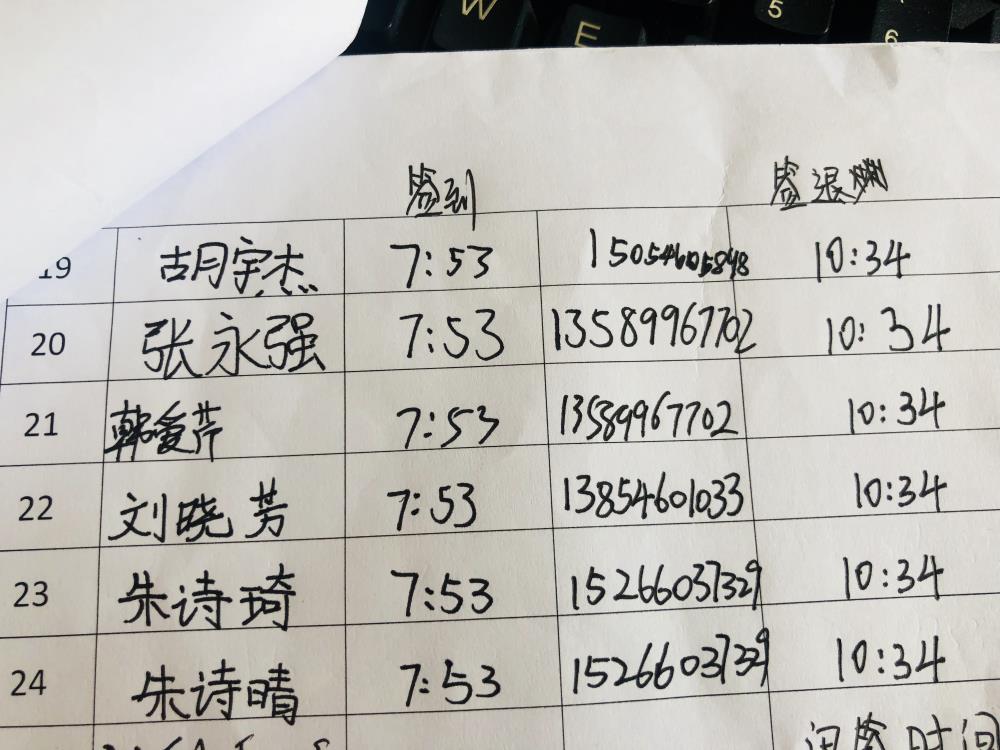 W E 5 6
签到 签退
19 胡月宇杰 7:53 15054605848 10:34
20 张永强 7:53 13589967702 10:34
21 韩爱芹 7:53 13589967702 10:34
22 刘晓芳 7:53 13854601033 10:34
23 朱诗琦 7:53 15266037329 10:34
24 朱诗晴 7:53 15266037329 10:34
时间